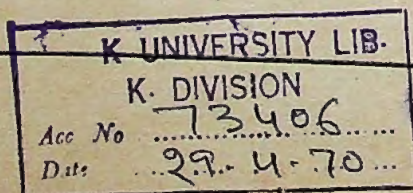 K UNIVERSITY LIB.
K. DIVISION
Acc No ........73406.......
Date ...29.-4-70....